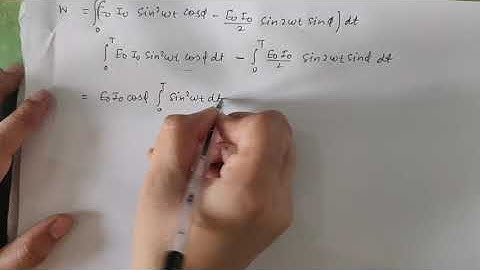 W = ∫₀ᵀ (E₀ I₀ sin²ωt cosϕ − E₀ I₀/2 sin2ωt sinϕ) dt
∫₀ᵀ E₀ I₀ sin²ωt cosϕ dt − ∫₀ᵀ E₀ I₀/2 sin2ωt sinϕ dt
= E₀ I₀ cosϕ ∫₀ᵀ sin²ωt dt